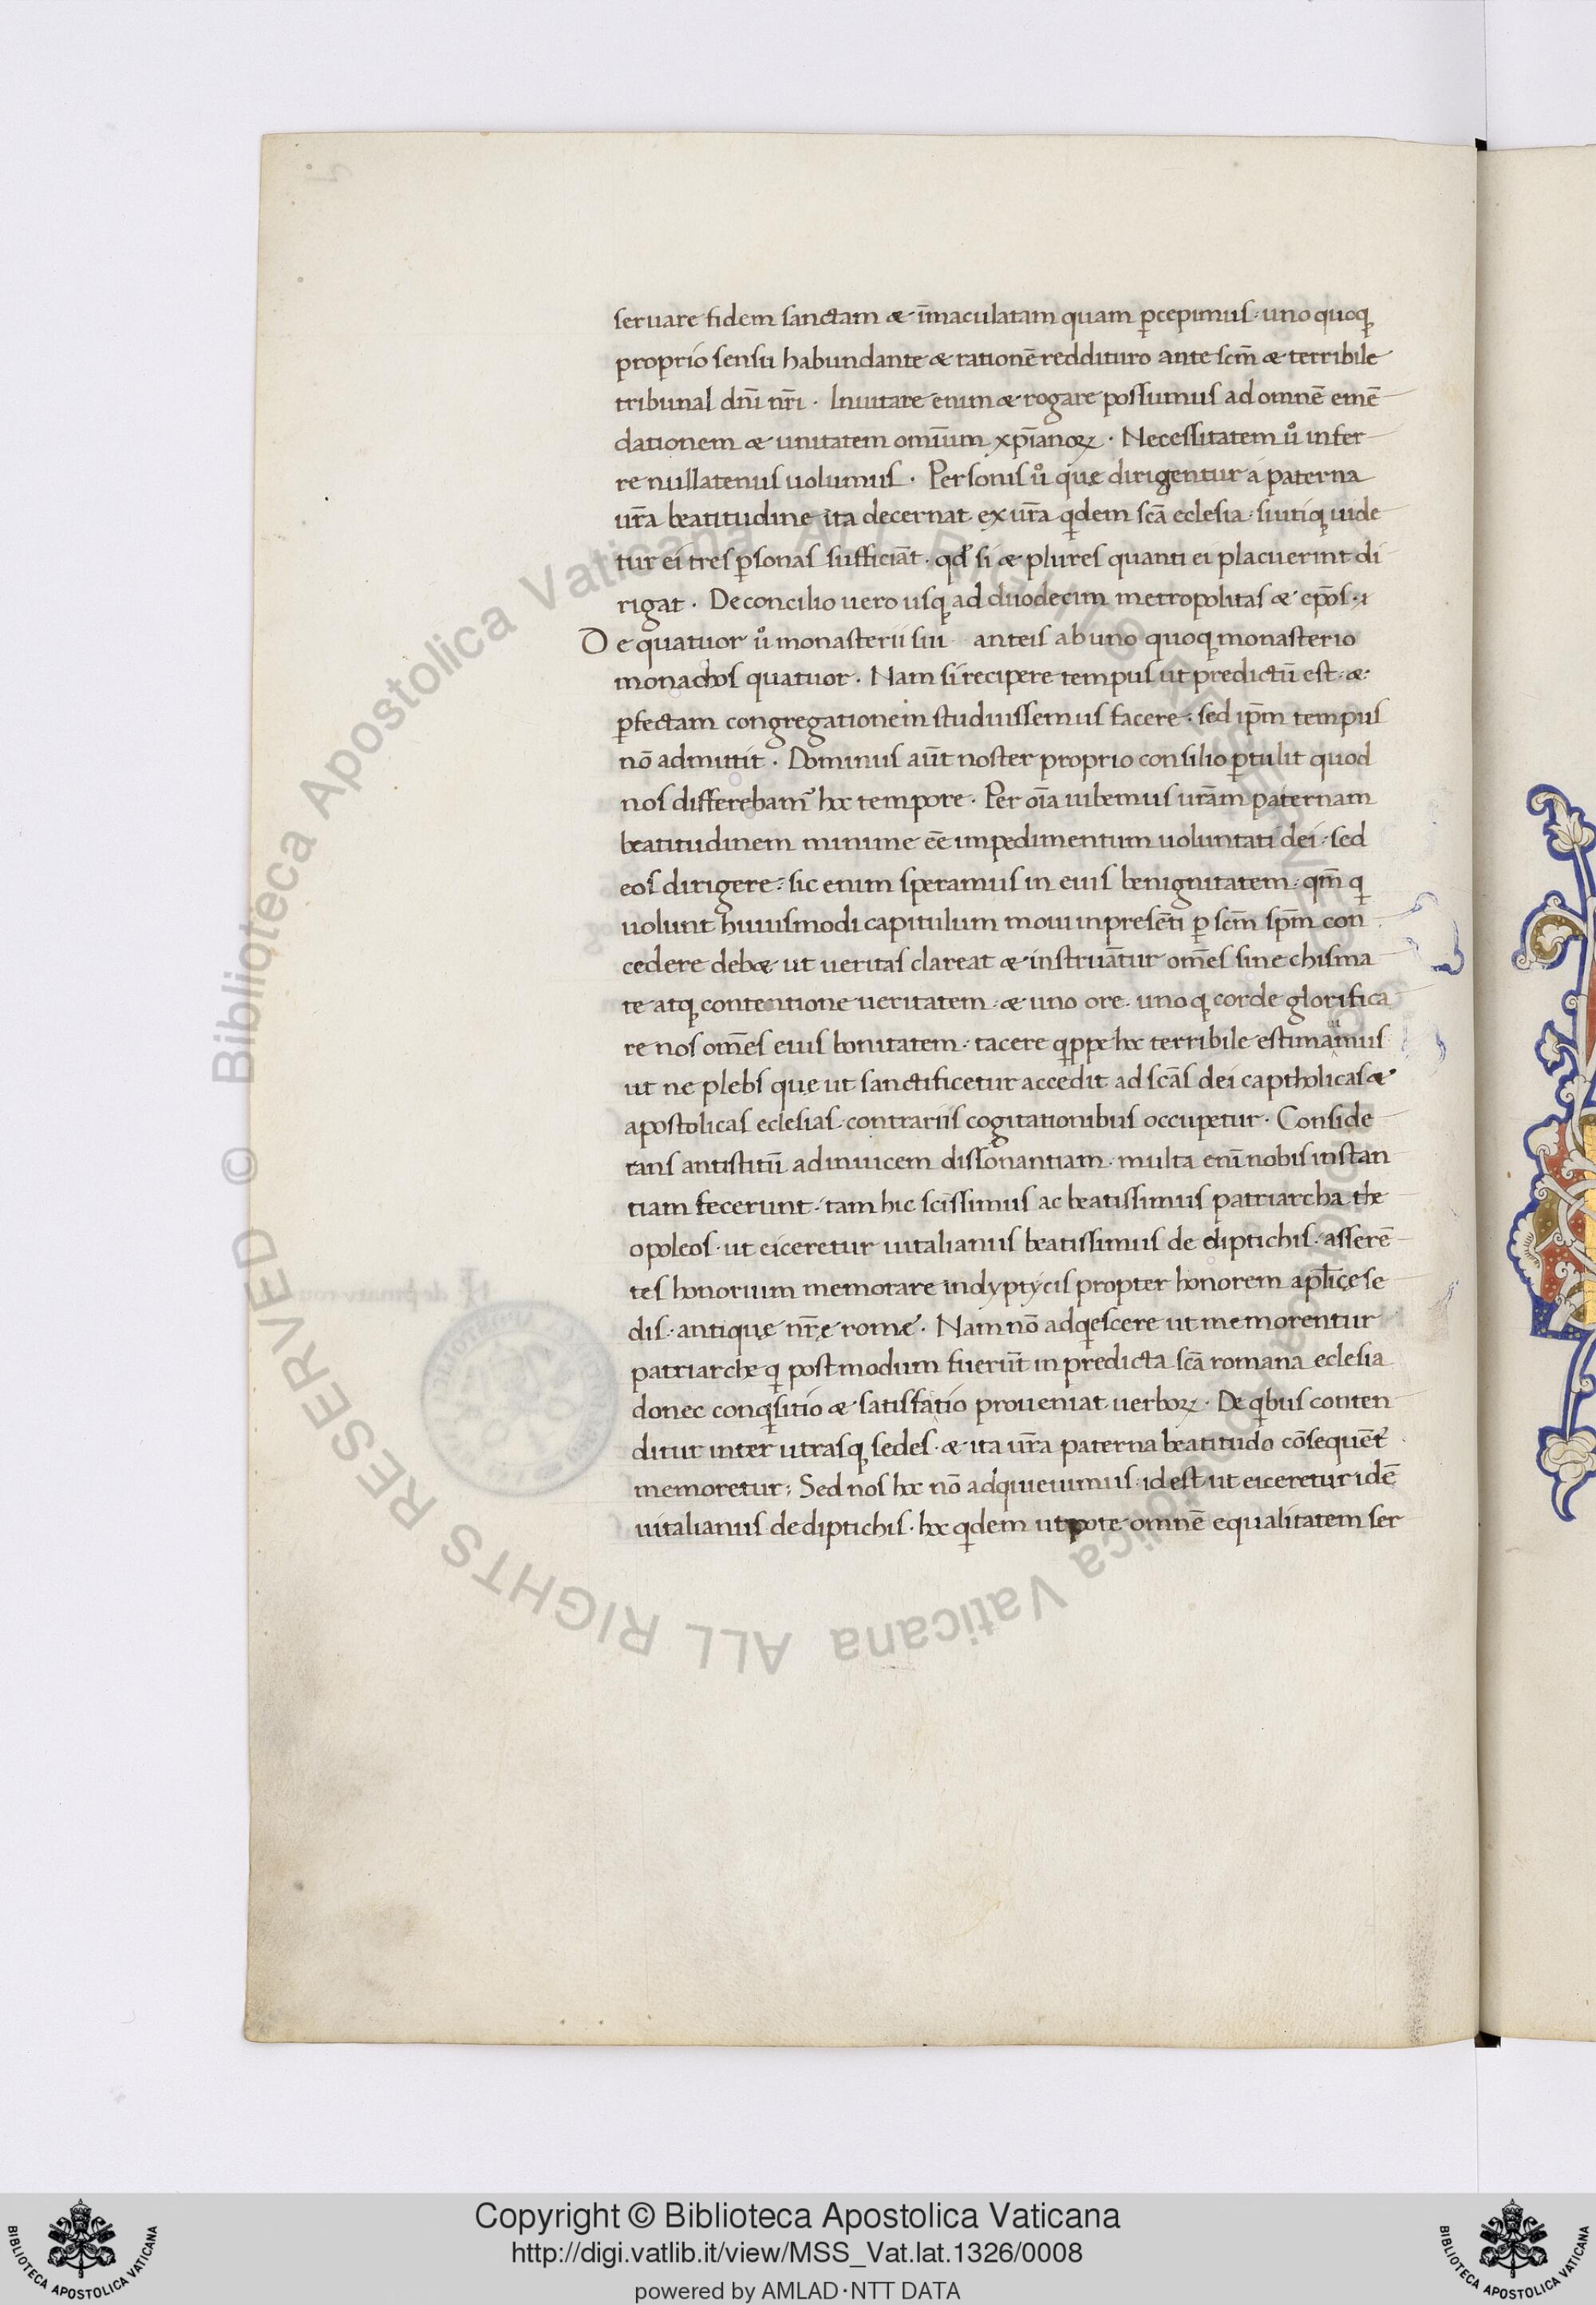 seruare fidem sanctam & im̄aculatam quam ꝑcepimus · uno quoqꝫ
proprio sensu habundante & rationē reddituro ante scm̄ & terribile
tribunal dn̄i nr̄i · Inuitare enim & rogare possumus ad omnē emē
dationem & unitatem omīum xp̄ianoꝝ · Necessitatem ů infer
re nullatenus uolumus · Personis ů quę dirigentur a paterna
ur̄a beatitudine ita decernat ex ur̄a qͥdem scā eclesia · siutiqꝫ uide
tur ei tres ꝑsonas sufficiāt · qđ si & plures quanti ei placuerint di
rigat · De concilio uero usqꝫ ad duodecim metropolitas & ep̄os · ⁊
De quatuor ů monasterii siu anteis ab uno quoqꝫ monasterio
monachos quatuor · Nam si recipere tempus ut predictū est · &
ꝑfectam congregationem studuissemus facere · sed ip̄m tempus
nō admittit · Dominus aūt noster proprio consilio ꝑtulit quod
nos differebam᷒ hoc tempore · Per oīa iubemus urām paternam
beatitudinem minime eē impedimentum uoluntati dei · sed
eos dirigere · sic enim speramus in eius benignitatem · qm̄ qͥ
uolunt huiusmodi capitulum moui in presēti ꝑ scm̄ sp̄m con
cedere deb& ut ueritas clareat & instruātur om̄es sine chisma
te atqꝫ contentione ueritatem · & uno ore · uno qꝫ corde glorifica
re nos om̄es eius bonitatem · tacere qͥppe hoc terribile estimauimus
ut ne plebs quę ut sanctificetur accedit ad scās dei captholicas &
apostolicas eclesias · contrariis cogitationibus occupetur · Conside
rans antistitū adinuicem dissonantiam · multa enī nobis instan
tiam fecerunt · tam hic scīssimus ac beatissimus patriarcha the
opoleos · ut eiceretur uitalianus beatissimus de diptichis · asserē
tes honorium memorare in dyptycis propter honorem apl̄icę se
dis · antiquę nr̄ę romę · Nam nō adqͥescere ut memorentur
patriarche qͥ postmodum fuerūt in predicta scā romana eclesia
donec conqͥsitio & satisfatio proueniat uerboꝝ · De qͥbus conten
ditur inter utrasqꝫ sedes · & ita ur̄a paterna beatitudo cōsequēt᷑
memoretur ; Sed nos hoc nō adquieuimus · id est ut eiceretur idē
uitalianus de diptichis · hoc qͥdem utpote omnē equalitatem ser
© Biblioteca Apostolica Vaticana ALL RIGHTS RESERVED
© Biblioteca Apostolica Vaticana ALL RIGHTS RESERVED
Copyright © Biblioteca Apostolica Vaticana
http://digi.vatlib.it/view/MSS_Vat.lat.1326/0008
powered by AMLAD·NTT DATA
BIBLIOTECA APOSTOLICA VATICANA
BIBLIOTECA APOSTOLICA VATICANA